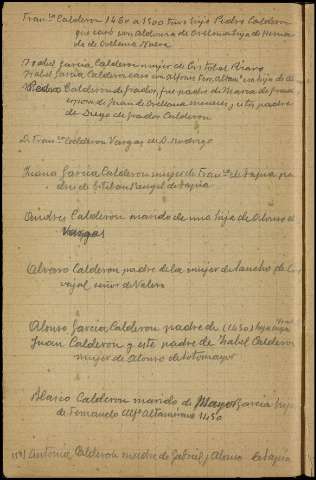 Fran.co Calderon 1480 a 1500 tuvo hijo Pedro Calderon
que casó con Aldonza de Orellana hija de Herna
do de Orellana Nueva
Isabel García Calderon mujer de Cristobal Pizaro
Isabel García Calderon caso con Alfonso Fern. Altam.no en hija de
Pedro Calderon de Grador, fue padre de Maria de Grado
esposa de Juan de Orellana meneses, y este padre
de Diego de Grador Calderon
D. Fran.co Calderon Vargas de D. Rodrigo
Juana García Calderon mujer de Fran.co de Tapia pa
dres de Esteban Rangel de Tapia
Andres Calderon marido de una hija de Alonso de
Vargas
Alvaro Calderon padre de la mujer de Sancho de Car
vajal, señor de Valero
Alonso García Calderon padre de (1450)
Juan Calderon y este padre de Isabel Calderon
mujer de Alonso de Sotomayor
Blasco Calderon marido de Mayor García hija
de Fernando Alf.o Altamirano 1450
Antonia Calderon madre de Gabriel y Alonso de Tapia